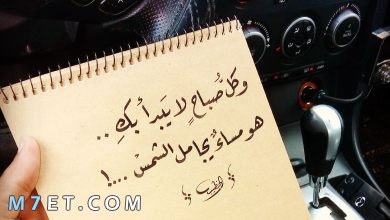 وكل صُباحٍ لا يَبدأ بكِ ..
هو مساءٌ يجامل الشمسْ ...!
M7ET.COM